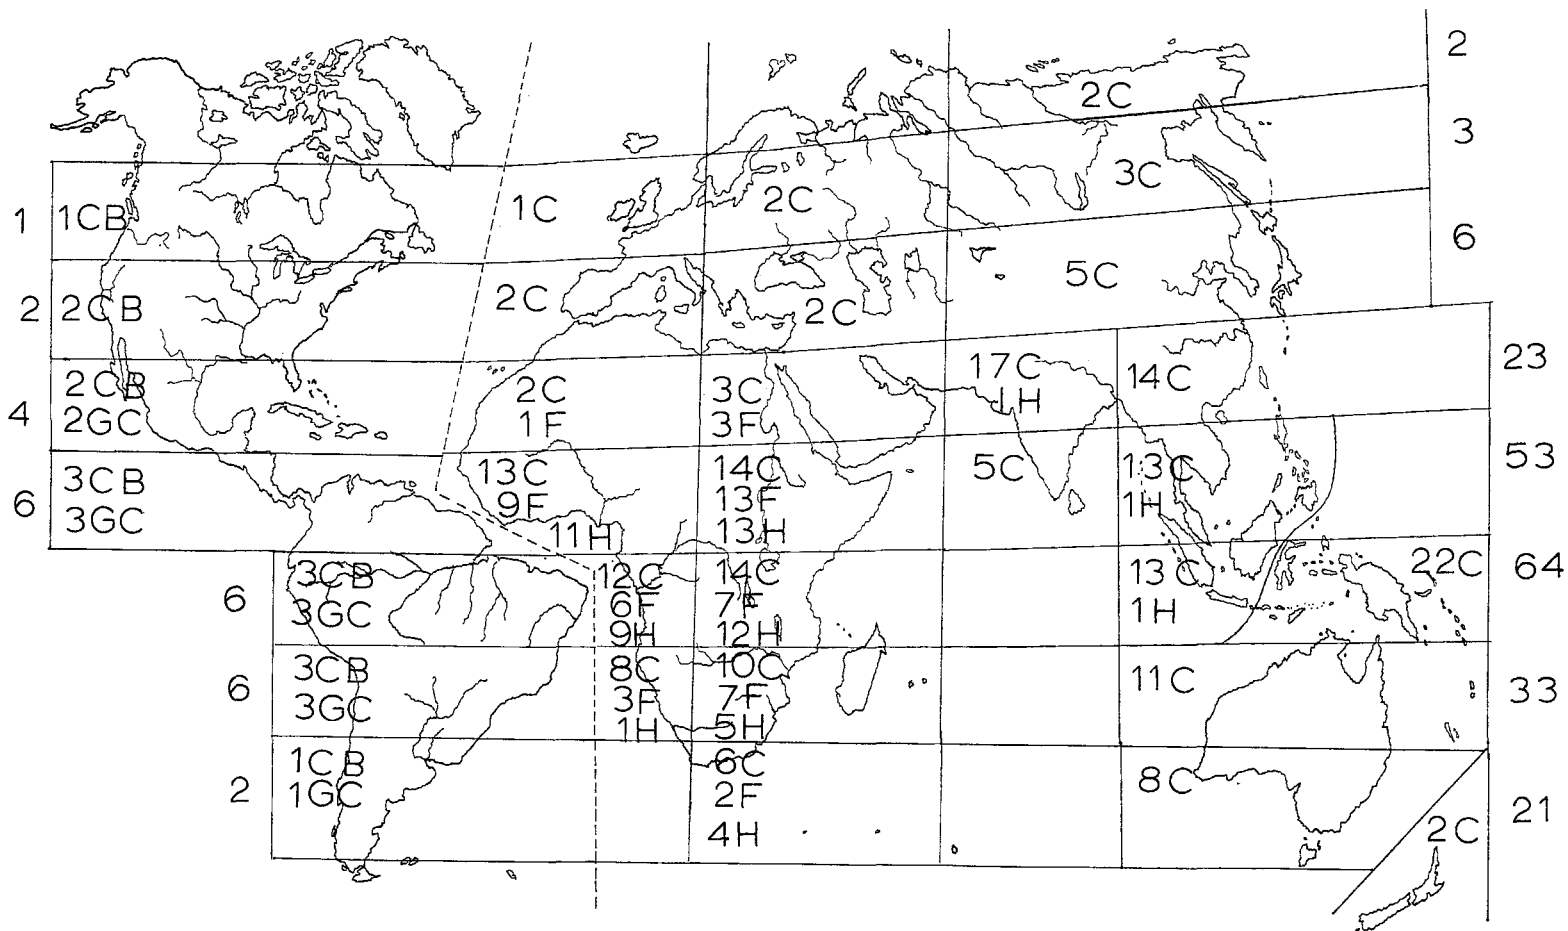 2
2C
3
3C
1
1CB
1C
2C
6
5C
2
2CB
2C
2C
23
17C
1H
14C
4
2CB
2GC
2C
1F
3C
3F
53
6
3CB
3GC
13C
9F
11H
14C
13F
13H
5C
13C
1H
64
6
3CB
3GC
12C
6F
9H
14C
7F
12H
13C
1H
22C
6
3CB
3GC
8C
3F
1H
10C
7F
5H
11C
33
2
1CB
1GC
6C
2F
4H
8C
2C
21